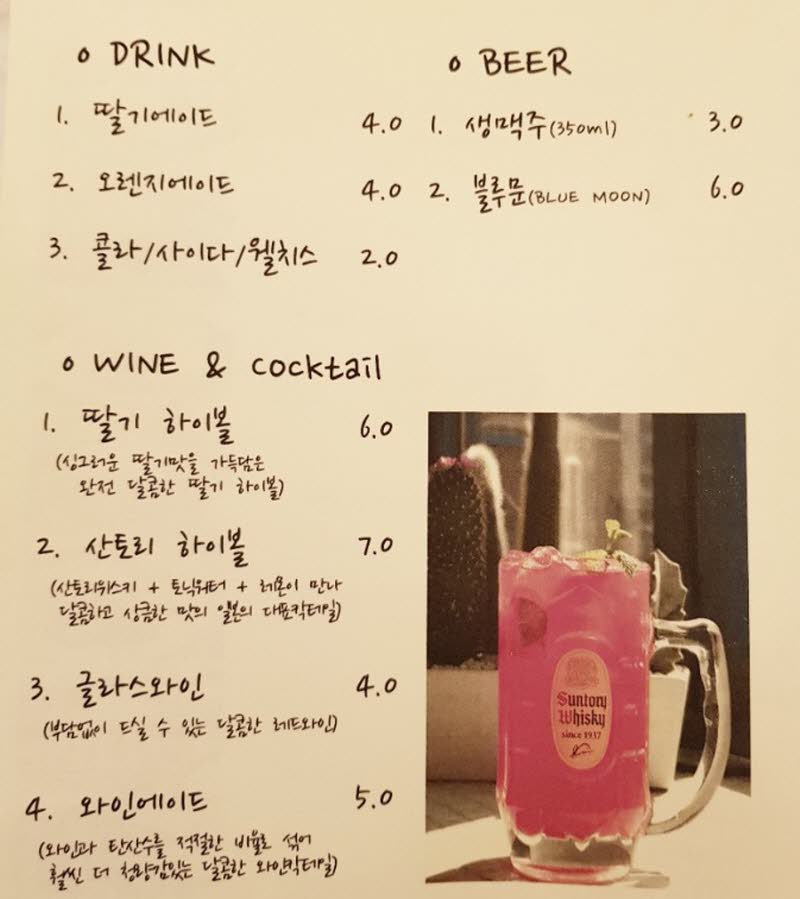 o DRINK
1. 딸기에이드 4.0
2. 오렌지에이드 4.0
3. 콜라/사이다/웰치스 2.0
o BEER
1. 생맥주(350ml) 3.0
2. 블루문(BLUE MOON) 6.0
o WINE & cocktail
1. 딸기 하이볼 6.0
(싱그러운 딸기맛을 가득담은
완전 달콤한 딸기 하이볼)
2. 산토리 하이볼 7.0
(산토리위스키 + 토닉워터 + 레몬이 만나
달콤하고 상콤한 맛의 일본의 대표칵테일)
3. 글라스와인 4.0
(부담없이 드실 수 있는 달콤한 레드와인)
4. 와인에이드 5.0
(와인과 탄산수를 적절한 비율로 섞어
훨씬 더 청량감있는 달콤한 와인칵테일)
Suntory
Whisky
since 1937